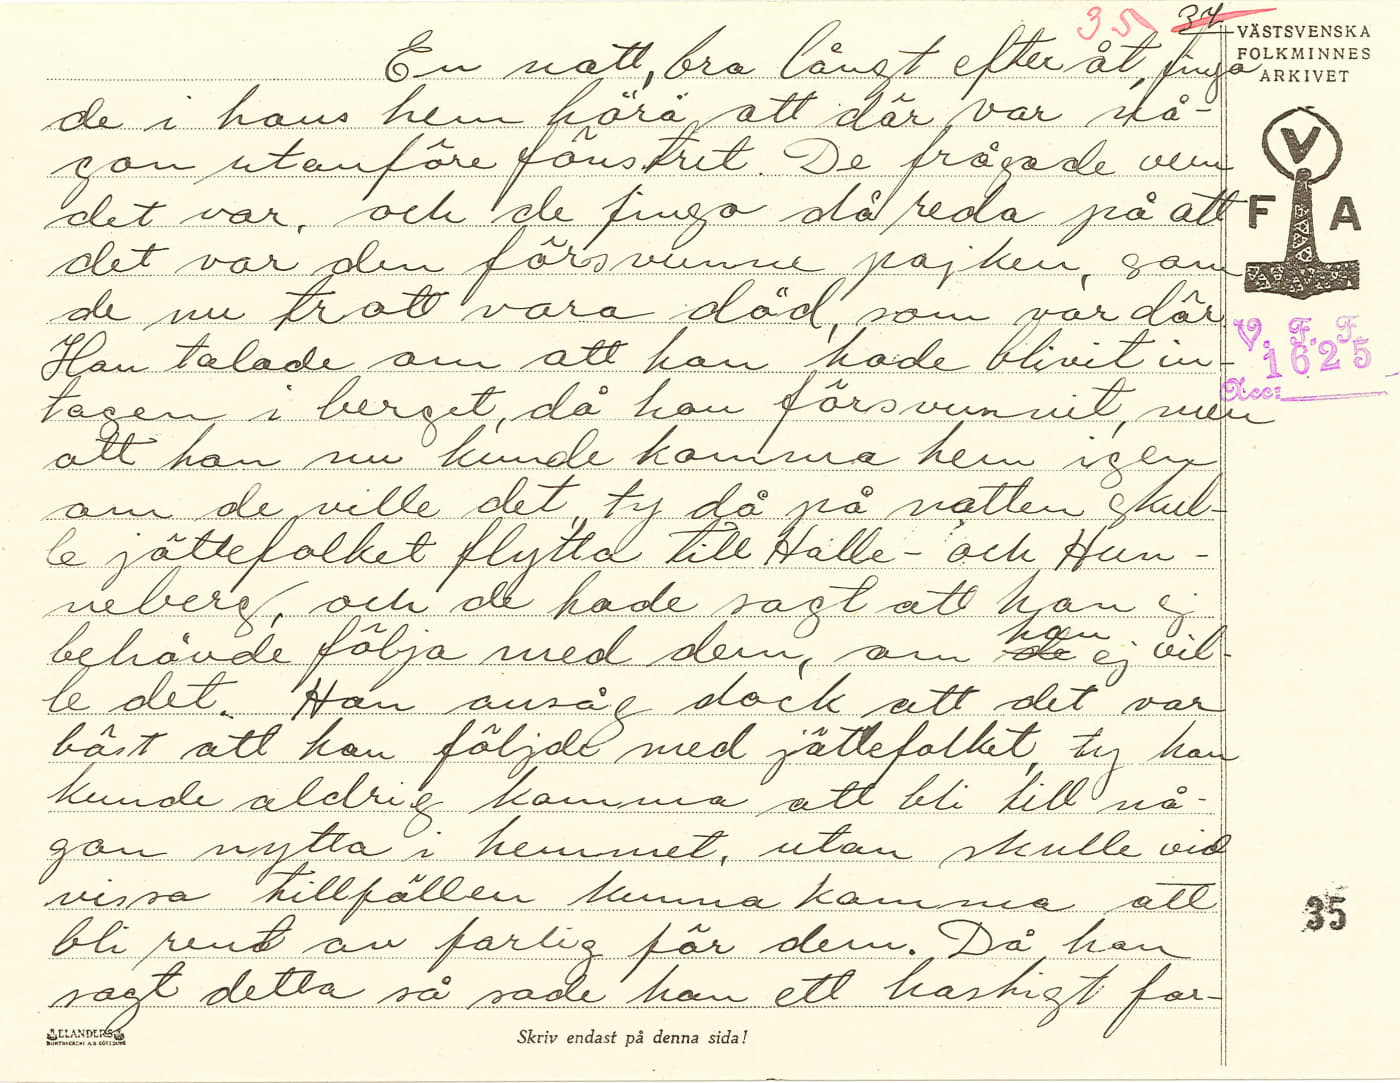 35 37
VÄSTSVENSKA
FOLKMINNES
ARKIVET
V
F A
V. F. F.
1625
Acc:
35
En natt, bra långt efter åt, fingo
de i hans hem höra att där var nå-
gon utanföre fönstret. De frågade vem
det var, och de fingo då reda på att
det var den försvunne pojken, som
de nu trott vara död, som var där.
Han talade om att han hade blivit in-
tagen i berget, då han försvunnit, men
att han nu kunde komma hem igen
om de ville det, ty då på natten skul-
le jättefolket flytta till Halle- och Hun-
neberg, och de hade sagt att han ej
behövde följa med dem, om de han ej vil-
le det. Han ansåg dock att det var
bäst att han följde med jättefolket, ty han
kunde aldrig komma att bli till nå-
gon nytta i hemmet, utan skulle vid
vissa tillfällen kunna komma att
bli rent av farlig för dem. Då han
sagt detta så sade han ett hastigt far-
ELANDERS
Skriv endast på denna sida!